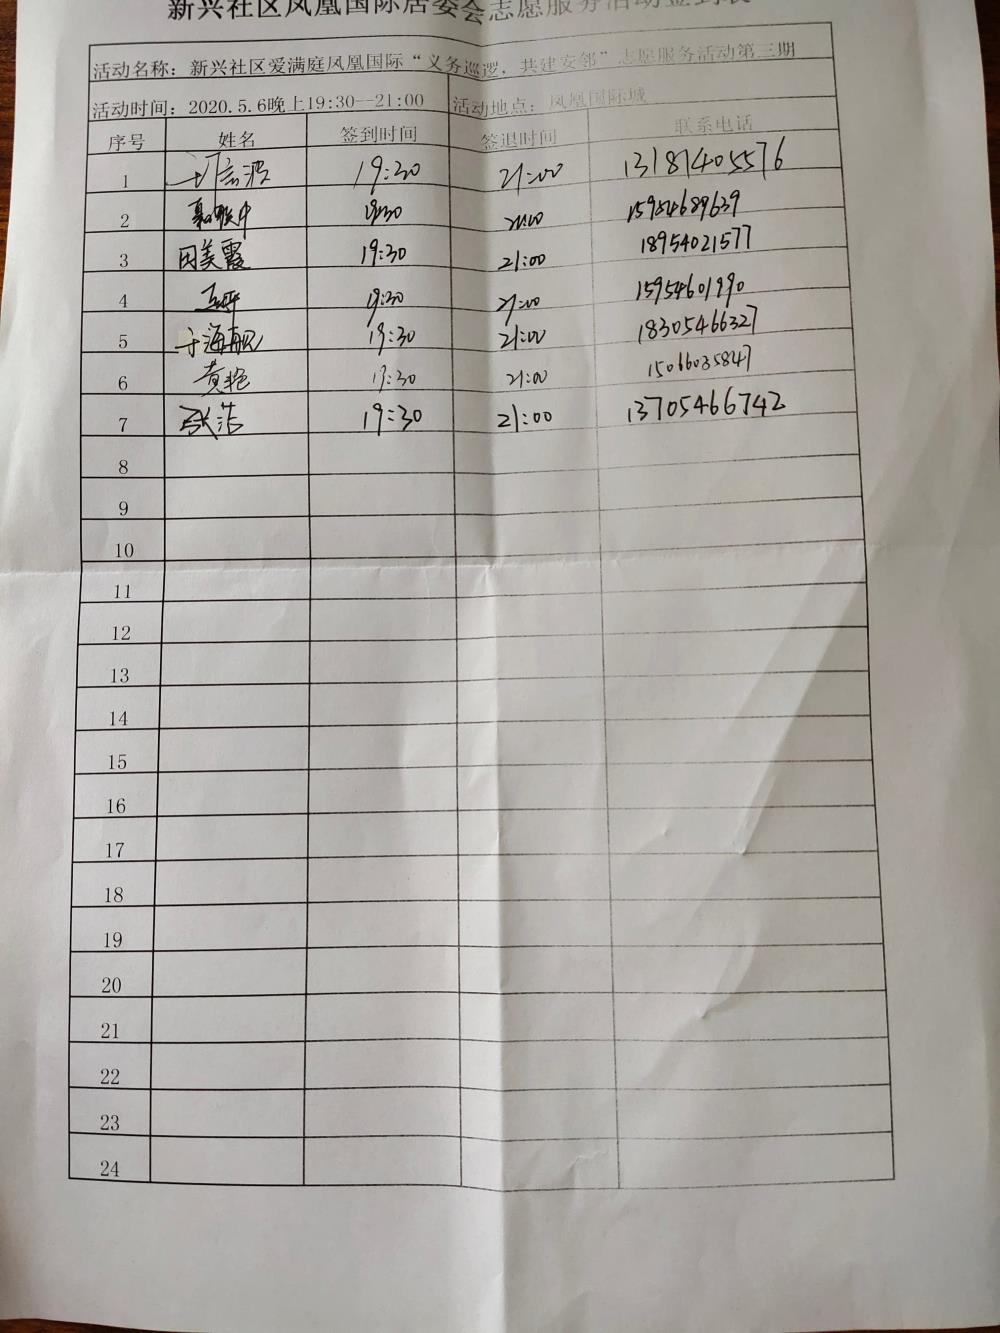 新兴社区凤凰国际居委会志愿服务活动签到表
活动名称：新兴社区爱满庭凤凰国际“义务巡逻，共建安邻”志愿服务活动第三期
活动时间：2020.5.6晚上19:30—21:00 活动地点：凤凰国际城
序号 姓名 签到时间 签退时间 联系电话
1 19:30 21:00 13181405576
2 19:30 21:00 15954689639
3 田美霞 19:30 21:00 18954021577
4 19:30 21:00 15954601990
5 于海舰 19:30 21:00 18305466327
6 黄艳 19:30 21:00 15066035847
7 张洁 19:30 21:00 13705466742
8
9
10
11
12
13
14
15
16
17
18
19
20
21
22
23
24